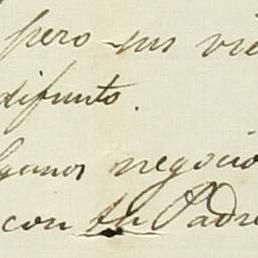 pero sus vie
difunto.
lgunos negocio
con tu Padre